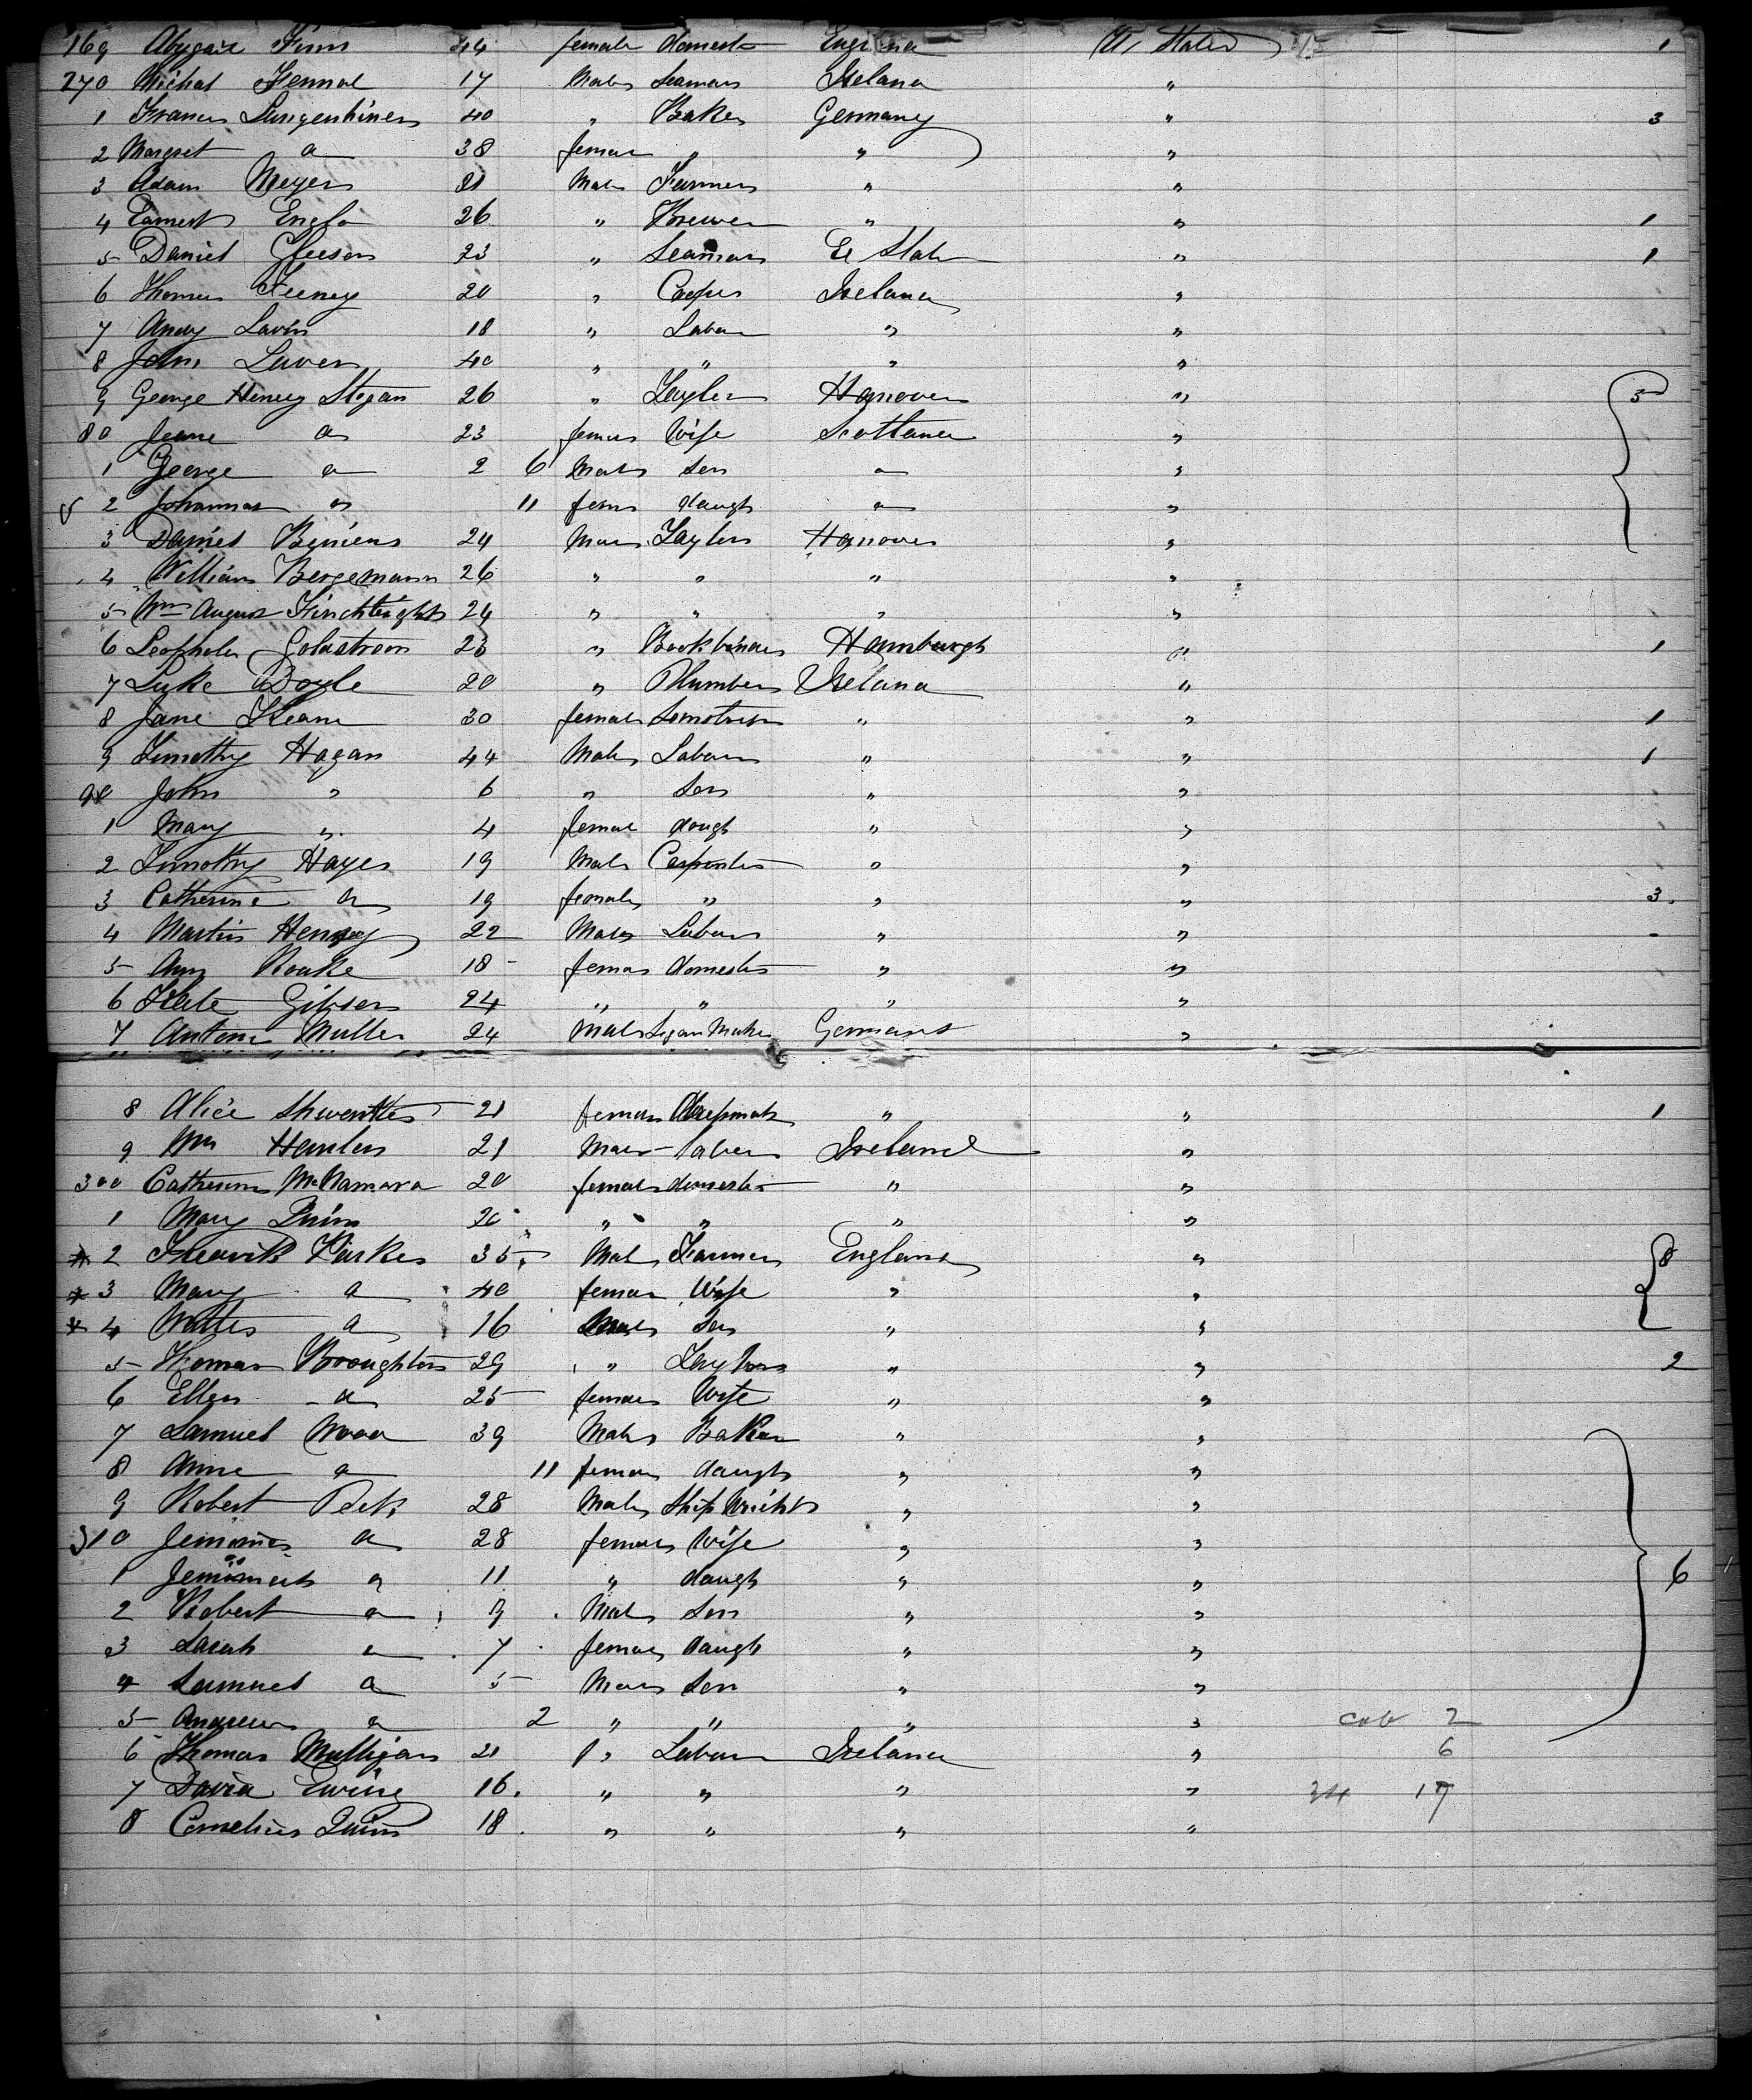 169 Abygail Finn 24 female domestic England U, States 1
270 Michal Kennal 17 Male Seaman Ireland "
1 Francis 40 " Baker Germany " 3
2 Margret a 38 female " " "
3 Adam Meyer 21 Male Farmer " "
4 Earnest Engle 26 " Brewer " " 1
5 Daniel Gleeson 23 " Seaman U States " 1
6 Thomas Feeney 20 " Ireland "
7 Andy Lavin 18 " Labour " "
8 John Laven 40 " " " "
9 George Henry Stegan 26 " Taylor Hanover " 5
80 Jeane a 23 female Wife Scotland "
1 George a 2 6 Male Son a "
2 Johannah a 11 fem daugh a "
3 Daniel 24 Male Taylor Hanover "
4 William Bergemann 26 " " " "
5 Wm August 24 " " " "
6 Leophole Goldstroon 23 " Bookbinder Hamburgh " 1
7 Luke Doyle 20 " Plumber Ireland "
8 Jane Keane 30 female " " 1
9 Timothy Hagan 44 Male Labour " " 1
90 John " 6 " Son " "
1 Mary " 4 female daugh " "
2 Timothy Hayes 19 Male Carpenter " "
3 Catherine a 19 female " " " 3
4 Martin 22 Male Labour " "
5 Ann Roake 18 female domestic " "
6 Kate Gibson 24 " " " "
7 Antone Muller 24 Male Segar Maker Germany "
8 Alice 21 female " " 1
9 Wm Hanlen 21 Male labour Ireland "
300 Catherine McNamara 20 female domestic " "
1 Mary Quinn 20 " " " "
2 Fredrick Parker 35 Male Farmer England "
3 Mary a 40 female Wife " "
4 Walter a 16 Male Son " "
5 Thomas Broughton 29 " Taylor " " 2
6 Ellen a 25 female Wife " "
7 Samuel Wood 39 Male Baker " "
8 Anne a 11 female daugh " "
9 Robert Peek 28 Male Ship Wright " "
310 Jemima a 28 female Wife " "
1 Jemimah a 11 " daugh " " 6
2 Robert a 9 Male Son " "
3 Sarah a 7 female daugh " "
4 Samuel a 5 Male Son " "
5 Andrew a 2 " " " " 2
6 Thomas Mulligan 21 " Labour Ireland " 6
7 David Ewing 16 " " " " 34 17
8 Cornelius Quinn 18 " " " "